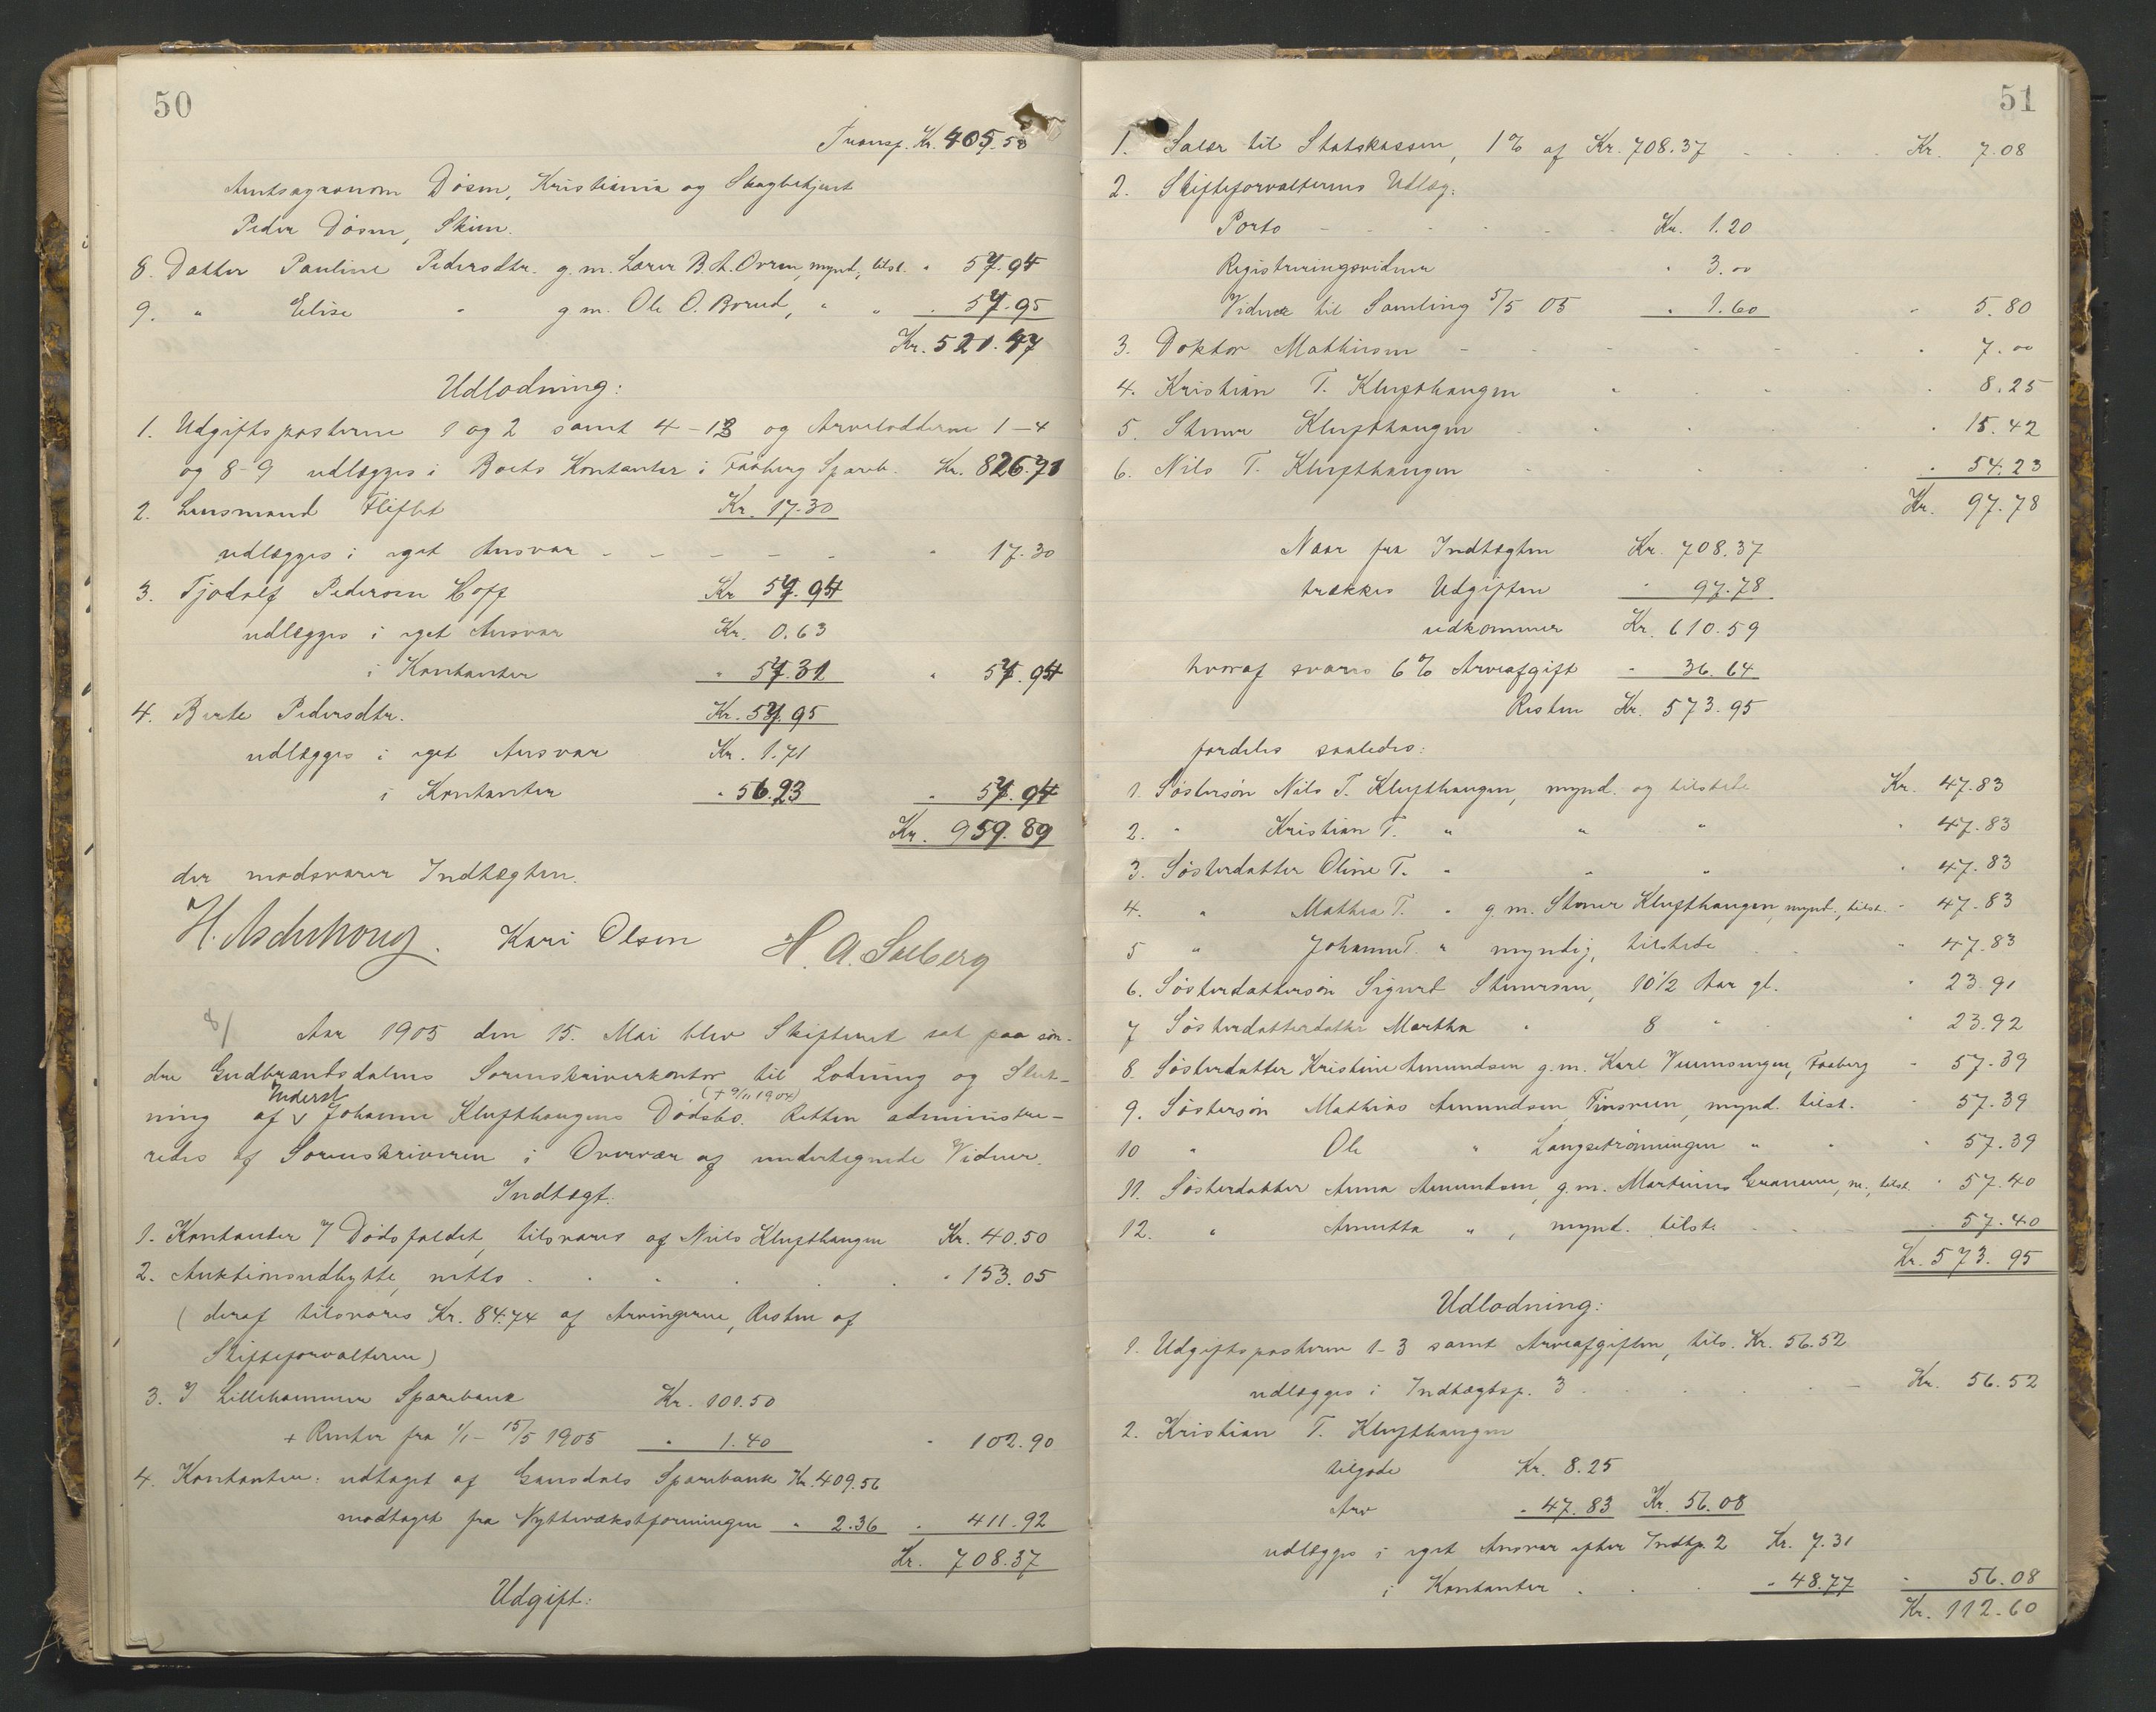 50
Transp. Kr. 405.58
Amtsagronom Døsen, Kristiania og Skogbetjent
Peder Døsen, Skien.
8. Datter Pauline Pedersdtr. g.m. Lærer B. A. Ovren, mynd., tilst. " 57.94
9. " Elise " g.m. Ole O. Brud, " " " 57.95
Kr. 521.47
Udlodning:
1. Udgiftsposterne 1 og 2 samt 4-13 og Arvelodderne 1-4
og 8-9 udlægges i Boets Kontanter i Faaberg Spareb. Kr. 826.71
2. Lensmand Fliflet Kr. 17.30
udlægges i eget Ansvar - - - - - " 17.30
3. Tjodolf Pedersen Hoff Kr 57.94
udlægges i eget Ansvar Kr. 0.63
i Kontanter " 57.31 " 57.94
4. Berte Pedersdtr. Kr. 57.95
udlægges i eget Ansvar Kr. 1.71
i Kontanter " 56.23 " 57.94
Kr. 959.89
der modsvarer Indtægten.
H. Aschehoug. Kari Olsen H. A. Solberg
8/ Aar 1905 den 15. Mai blev Skifteret sat paa søn-
dre Gudbrandsdalens Sorenskriverkontor til Lodning og Slut-
Inderst (+ 9/11 1904)
ning af v Johanne Klufthaugens Dødsbo. Retten administre-
redes af Sorenskriveren i Overvær af undertegnede Vidner.
Indtægt:
1. Kontanter v/ Dødsfaldet, tilsvares af Nils Klufthaugen Kr. 40.50
2. Auktionsudbytte, netto . . . . . " 153.05
(deraf tilsvares Kr. 84.74 af Arvingerne, Resten af
Skifteforvalteren)
3. I Lillehammer Sparebank Kr. 101.50
+ Renter fra 1/1 - 15/5 1905 " 1.40 " 102.90
4. Kontanter: udtaget af Gausdals Sparebank Kr. 409.56
modtaget fra Nyttevækstforeningen " 2.36 " 411.92
Kr. 708.37
Udgift:
51
1. Salær til Statskassen, 1% af Kr. 708.37 - . . . Kr. 7.08
2. Skifteforvalterens Udlæg:
Porto - - - - - - Kr. 1.20
Registreringsvidner " 3.00
Vidner til Samling 5/5 05 " 1.60 " 5.80
3. Doktor Mathiesen - - - - - - " 7.00
4. Kristian T. Klufthaugen " 8.25
5. Stener Klufthaugen " 15.42
6. Nils T. Klufthaugen " 54.23
Kr. 97.78
Naar fra Indtægten Kr. 708.37
trækkes Udgiften " 97.78
udkommer Kr. 610.59
hvoraf svares 6% Arveafgift " 36.64
Resten Kr. 573.95
fordeles saaledes:
1. Søstersøn Nils T. Klufthaugen, mynd. og tilstede Kr. 47.83
2. " Kristian T. " " " " 47.83
3. Søsterdatter Oline T. " " " " 47.83
4. " Mathea T. " g.m. Stener Klufthaugen, mynd., tilst. " 47.83
5 " Johanne T. " myndig, tilstede . . " 47.83
6. Søsterdattersøn Sigurd Stenersen, 10 1/2 Aar gl. " 23.91
7 Søsterdatterdatter Martha " 8 " " 23.92
8. Søsterdatter Kristine Amundsen g.m. Karl , Faaberg " 57.39
9. Søstersøn Mathias Amundsen , mynd. tilst. " 57.39
10 " Ole " Langseterønningen " " " 57.39
11. Søsterdatter Anna Amundsen, g.m. Martinus , m., tilst. " 57.40
12. " Annetta " , mynd. tilste. . . " 57.40
Kr. 573.95
Udlodning:
1. Udgiftsposterne 1-3 samt Arveafgiften, tils. Kr. 56.52
udlægges i Indtægtsp. 3 . . . . . - Kr. 56.52
2. Kristian T. Klufthaugen
tilgode Kr. 8.25
Arv " 47.83 Kr. 56.08
udlægges i eget Ansvar efter Indtp. 2 Kr. 7.31
i Kontanter . . . " 48.77 " 56.08
Kr. 112.60